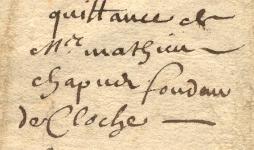 quittance de
Mre mathieu
chapuis fondeur
de Cloche